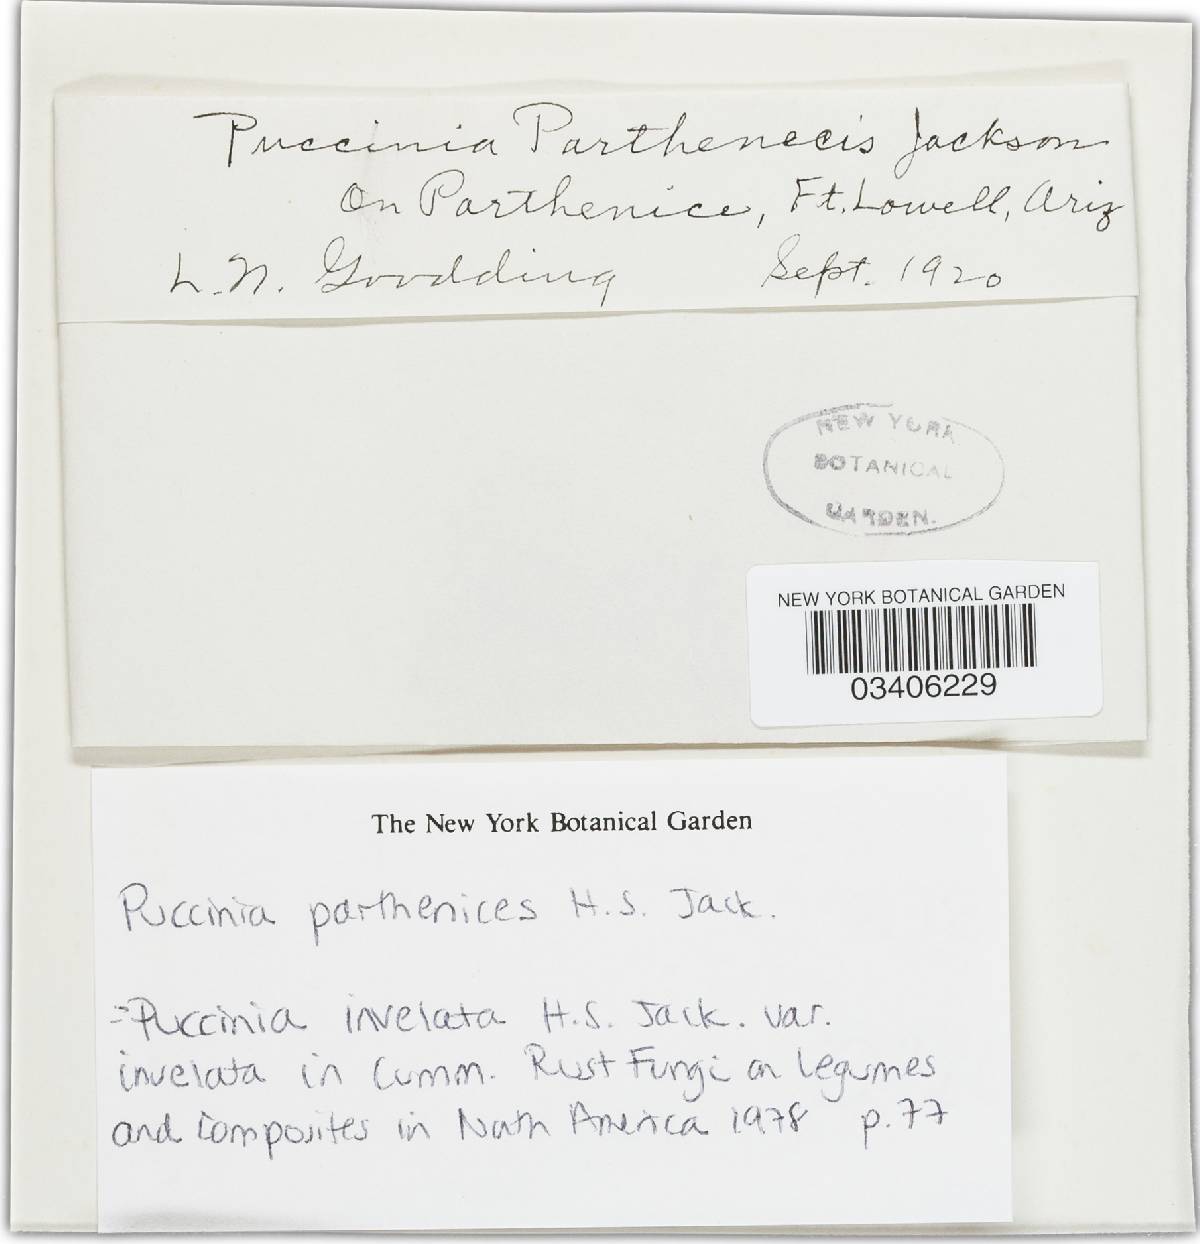 Puccinia Parthenecis Jackson
On Parthenice, Ft. Lowell, Ariz
L. N. Goodding Sept. 1920
NEW YORK
BOTANICAL
GARDEN.
NEW YORK BOTANICAL GARDEN
03406229
The New York Botanical Garden
Puccinia parthenices H.S. Jack.
=Puccinia invelata H.S. Jack. var.
invelata in Cumm. Rust Fungi on legumes
and Composites in North America 1978 p.77